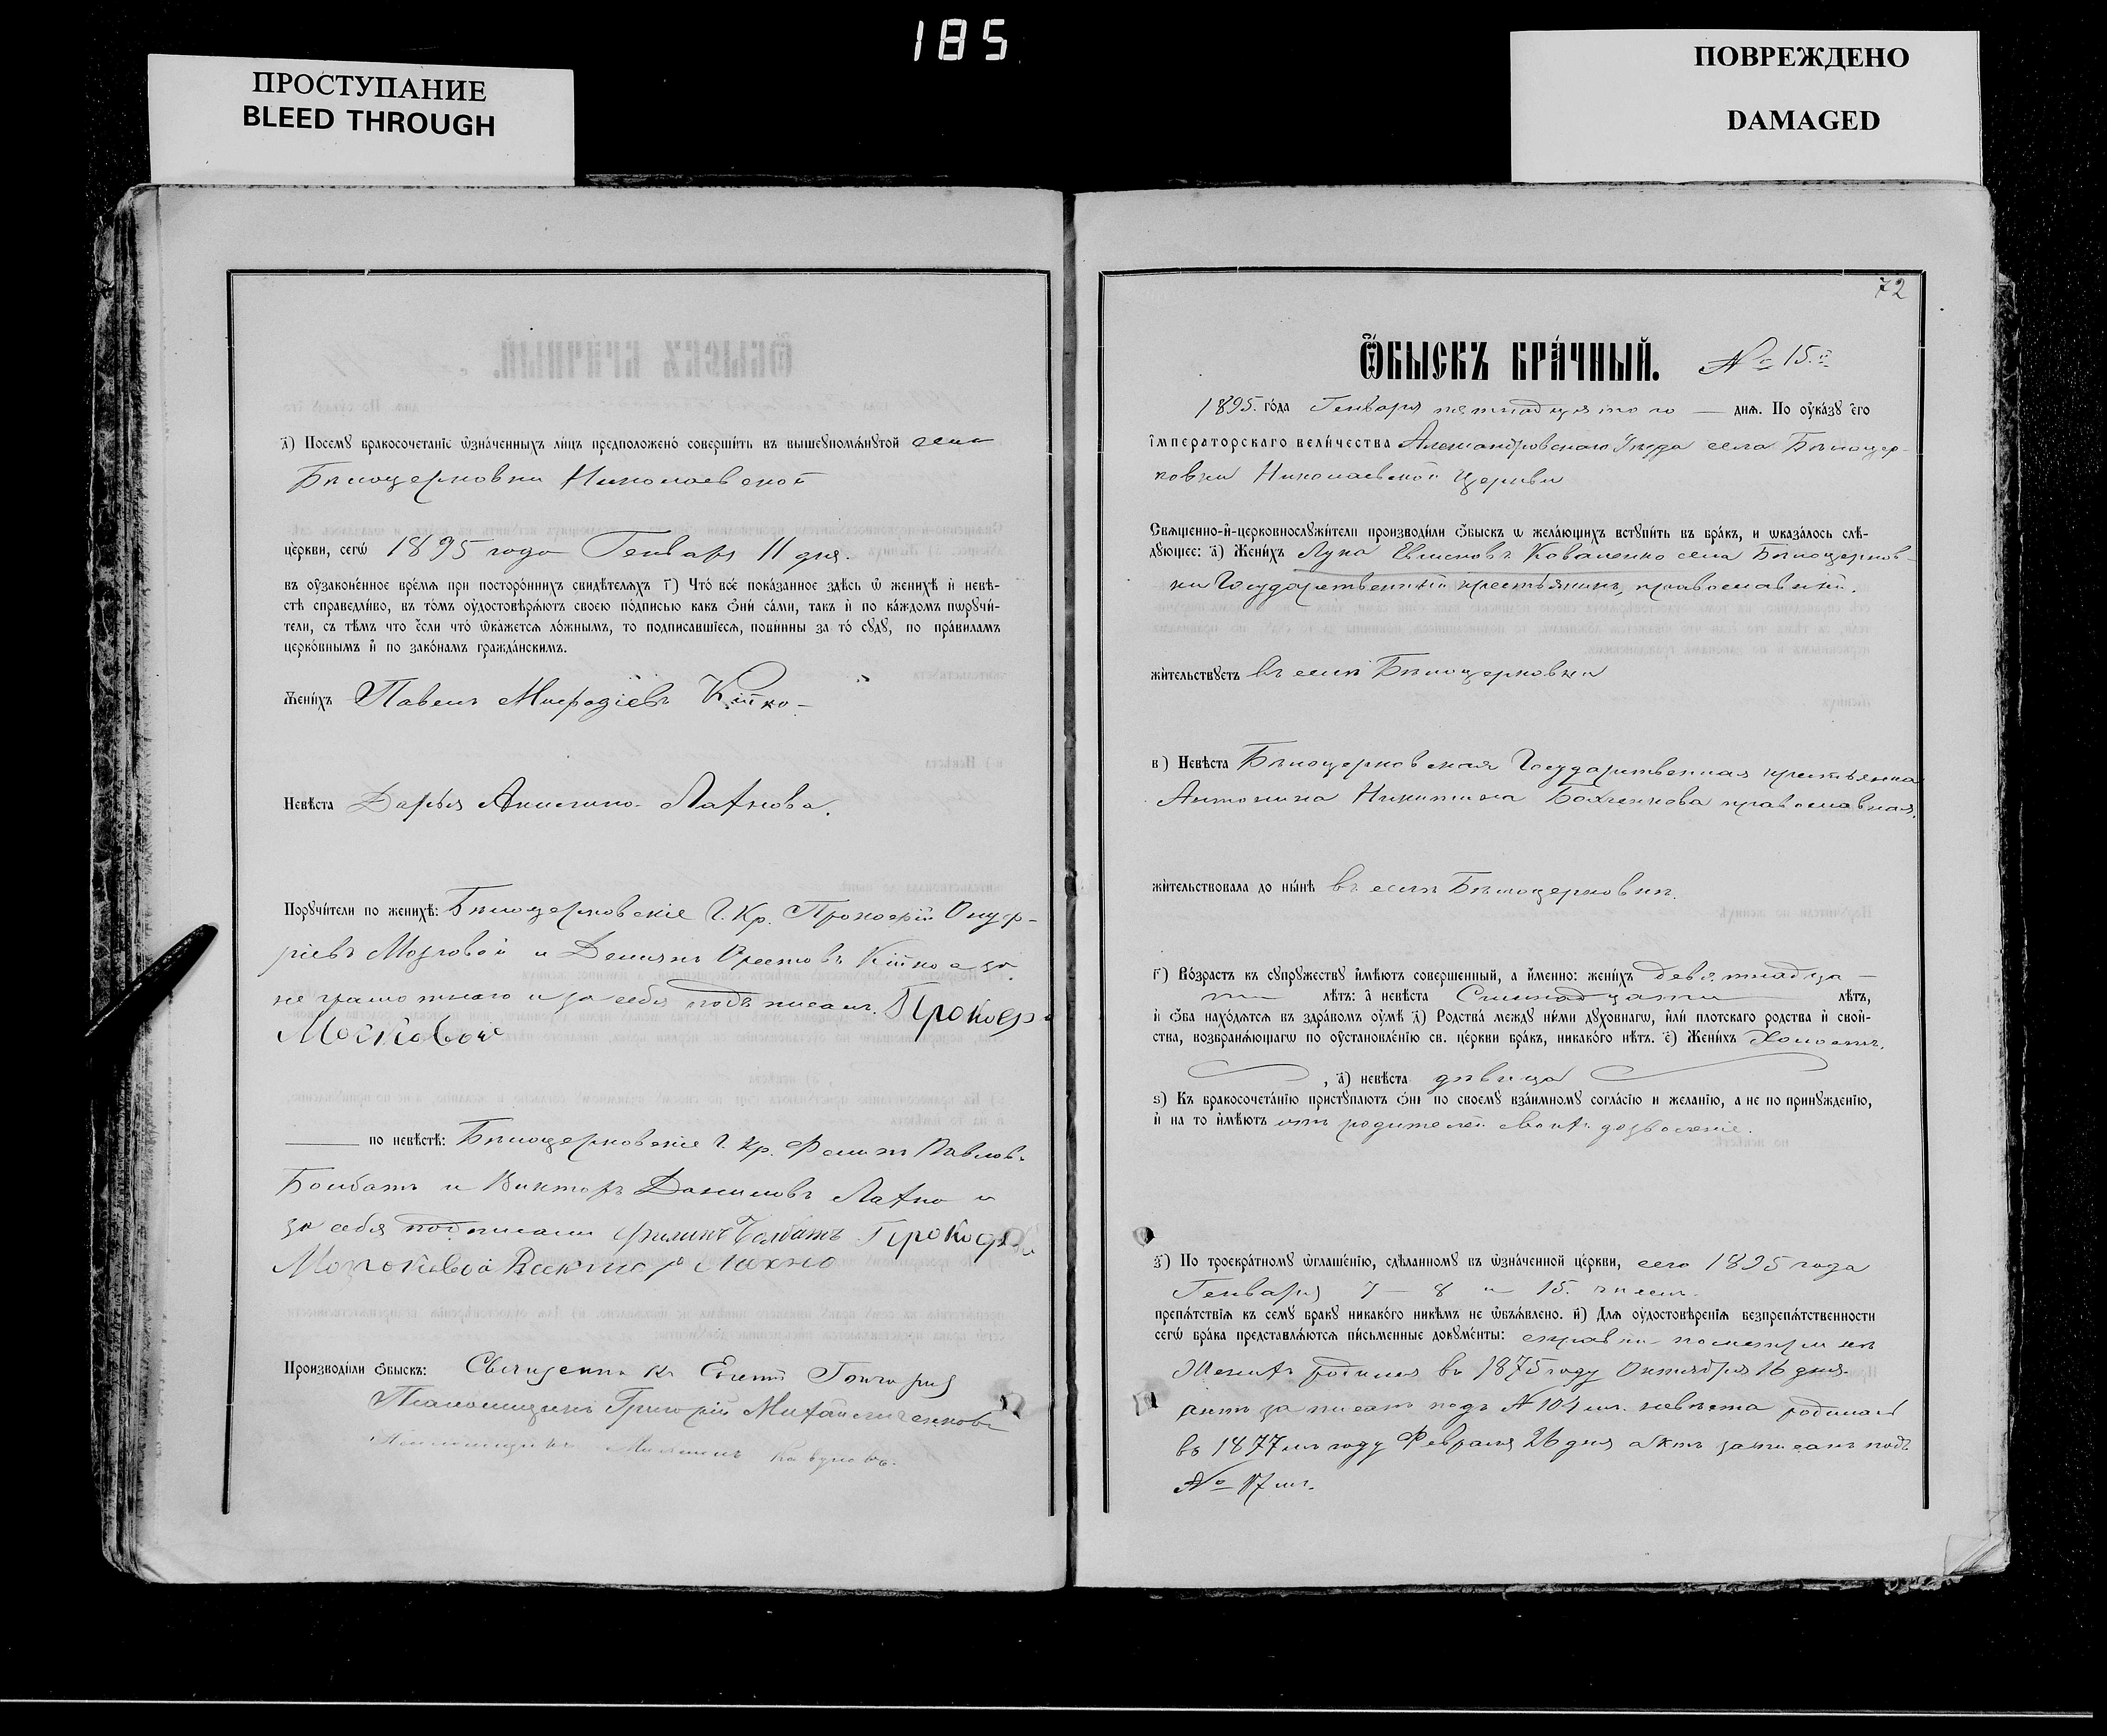 185
ПРОСТУПАНИЕ
BLEED THROUGH
ПОВРЕЖДЕНО
DAMAGED
д҃) Посемꙋ бракосочетаніе ѡзна́ченныхъ ли́цъ предположено́ соверши́ть въ вышеꙋпомѧ́нꙋтой села
Бѣлоцерковки Николаевской
це́ркви, сегѡ̀ 1895 года Генваря 11 дня.
въ ᲂу҆зако́не́нное вре́мѧ при посторо́ннихъ свидѣ́телѧхъ г҃) Что́ все́ пока́занное здѣ́сь ѡ҆ женихѣ̀ и҆ невѣ́-
стѣ справедли́во, въ то́мъ ᲂу҆достовѣрѧ́ютъ своею по́дписью какъ ѻ҆ни́ са́ми, такъ и҆ по ка́ждомъ пѡрꙋчи́-
тели, съ тѣ́мъ что е҆́сли что́ ѡ҆ка́жетсѧ ло́жнымъ, то подписавшіесѧ, пови́нны за то́ сꙋдꙋ̀, по пра́виламъ
церко́внымъ и҆ по зако́намъ гражда́нскимъ.
Жени́хъ Павелъ Мефодіевъ Кійко
Невѣ́ста Дарья Лахнова.
Порꙋчи́тели по женихѣ̀: Бѣлоцерковскіе Г. Кр. Прокофій Онуф-
ріевъ Мозговой и Демьянъ Орестовъ Кійко а за
не грамотнаго и за себя подъ писалъ. Прокоф
по невѣ́стѣ: Бѣлоцерковскіе Г. Кр. Филипъ Павловъ
Болбатъ и Викторъ Даниловъ Лахно и
за себя подписали Филипъ Болбатъ Прокоф
Викторъ Лахно
Производи́ли ѻ҆́быскъ: Священникъ
Псаломщикъ Григорій
Псаломщикъ
72
Ѻ҆́БЫСКЪ БРА́ЧНЫЙ. № 15.й
1895. го́да Генваря пятнадцятого — днѧ̀. По ᲂу҆ка́зꙋ є҆гѡ̀
і҆мператорскаго вели́чества Александровскаго Уѣзда села Бѣлоцер-
ковки Николаевской Церкви
Свѧщенно-и҆-церковнослꙋжи́тели производи́ли ѻ҆́быскъ ѡ҆ жела́ющихъ встꙋпи́ть въ бра́къ, и ѡ҆каза́лось слѣ́-
дꙋющее: а҃) Жени́хъ Лука Коваленко села Бѣлоцерков-
ки Государственный крестьянинъ, православный.
жи́тельствꙋетъ въ селѣ Бѣлоцерковки
в҃) Невѣ́ста Бѣлоцерковская Государственная крестьянка
Антонина Никитина православная.
жи́тельствовала до ны́нѣ въ селѣ Бѣлоцерковкѣ.
г҃) Во́зрастъ къ сꙋпрꙋ́жествꙋ и҆мѣ́ютъ совершенный, а и҆́менно: жени́хъ девятнадца
ти лѣ́тъ: а невѣ́ста Семнадцати лѣ́тъ,
и҆ ѻ҆́ба нахо́дѧтсѧ въ здра́вомъ ᲂу҆мѣ̀ д҃) Родства̀ междꙋ ни́ми дꙋховнагѡ, и҆лѝ плотскаго родства и҆ свой-
ства, возбранѧ́ющагѡ по ᲂу҆становле́нію св. це́ркви бра́къ, никако́го нѣ́тъ. є҃) Жени́хъ Холостъ.
, а) невѣ́ста дѣвица
ѕ҃) Къ бракосочета́нію пристꙋпаютъ ѻ҆нѝ по своемꙋ вза́имномꙋ согла́сію и желанію, а не по принꙋжденію,
и҆ на то и҆мѣ́ютъ отъ родителей своихъ дозволеніе.
з҃) По троекра́тномꙋ ѡ҆глаше́нію, сдѣ́ланномꙋ въ ѡ҆зна́ченной це́ркви, сего 1895 года
Генваря 7 — 8 и 15. числ.
препѧ́тствія къ семꙋ̀ бракꙋ никако́го никѣ́мъ не ѡ҆бъѧ́влено. и҃) Длѧ ᲂу҆достовѣ́ренія безпрепѧ́тственности
сегѡ̀ бра́ка представлѧ́ютсѧ пи́сьменные докꙋме́нты: справки по метрикѣ
Женихъ родился въ 1875 году Октября 16 дня.
актъ записанъ подъ № 104 м. невѣста родилась
въ 1877 мъ году Февраля 26 дня актъ записанъ подъ
№ 17 мъ.